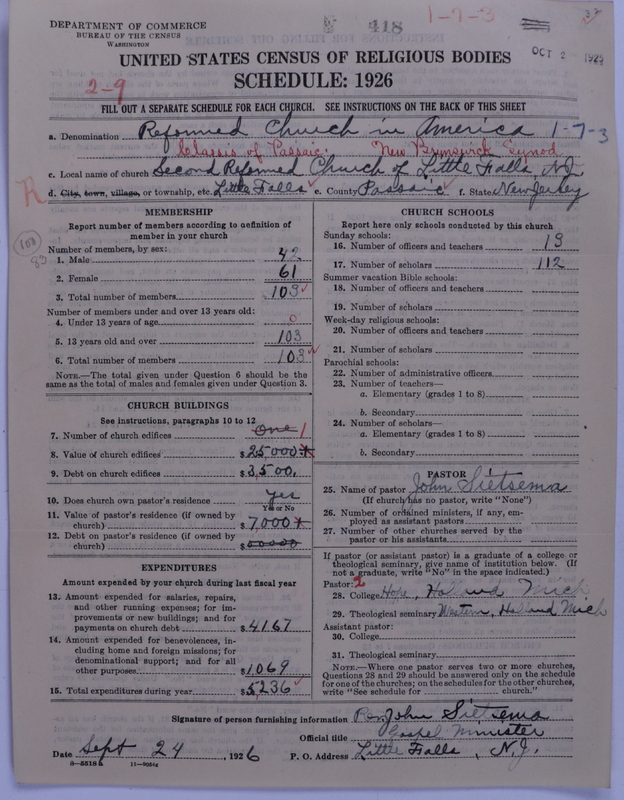 DEPARTMENT OF COMMERCE
BUREAU OF THE CENSUS
WASHINGTON
418
1-7-3
OCT 2 1926
UNITED STATES CENSUS OF RELIGIOUS BODIES
SCHEDULE: 1926
2-9
FILL OUT A SEPARATE SCHEDULE FOR EACH CHURCH. SEE INSTRUCTIONS ON THE BACK OF THIS SHEET
a. Denomination Reformed Church in America 1-7-3
Classis of Passaic. New Brunswick Synod
c. Local name of church Second Reformed Church of Little Falls, N.J.
R d. City, town, village, or township, etc. Little Falls e. County Passaic f. State New Jersey
MEMBERSHIP
Report number of members according to definition of member in your church
Number of members, by sex:
1. Male 42
2. Female 61
3. Total number of members 103
Number of members under and over 13 years old:
4. Under 13 years of age 0
5. 13 years old and over 103
6. Total number of members 103
NOTE.—The total given under Question 6 should be the
same as the total of males and females given under Question 3.
CHURCH BUILDINGS
See instructions, paragraphs 10 to 12
7. Number of church edifices One 1
8. Value of church edifices $25,000
9. Debt on church edifices $3,500.
10. Does church own pastor's residence Yes
Yes or No
11. Value of pastor's residence (if owned by
church) $7,000
12. Debt on pastor's residence (if owned by
church) $
EXPENDITURES
Amount expended by your church during last fiscal year
13. Amount expended for salaries, repairs,
and other running expenses; for im-
provements or new buildings; and for
payments on church debt $4167
14. Amount expended for benevolences, in-
cluding home and foreign missions; for
denominational support; and for all
other purposes $1069
15. Total expenditures during year $5,236
CHURCH SCHOOLS
Report here only schools conducted by this church
Sunday schools:
16. Number of officers and teachers 13
17. Number of scholars 112
Summer vacation Bible schools:
18. Number of officers and teachers
19. Number of scholars
Week-day religious schools:
20. Number of officers and teachers
21. Number of scholars
Parochial schools:
22. Number of administrative officers
23. Number of teachers—
a. Elementary (grades 1 to 8)
b. Secondary
24. Number of scholars—
a. Elementary (grades 1 to 8)
b. Secondary
PASTOR
25. Name of pastor John Sietsema
(If church has no pastor, write "None")
26. Number of ordained ministers, if any, em-
ployed as assistant pastors
27. Number of other churches served by the
pastor or his assistants
If pastor (or assistant pastor) is a graduate of a college or
theological seminary, give name of institution below. (If
not a graduate, write "No" in the space indicated.)
Pastor: 2
28. College Hope, Holland Mich
29. Theological seminary Western, Holland Mich
Assistant pastor:
30. College
31. Theological seminary
NOTE.—Where one pastor serves two or more churches,
Questions 28 and 29 should be answered only on the schedule
for one of the churches; on the schedules for the other churches,
write "See schedule for church."
Signature of person furnishing information Rev. John Sietsema
Official title Gospel Minister
Date Sept 24, 1926 P. O. Address Little Falls, N.J.
8-5518 a 11-9051a